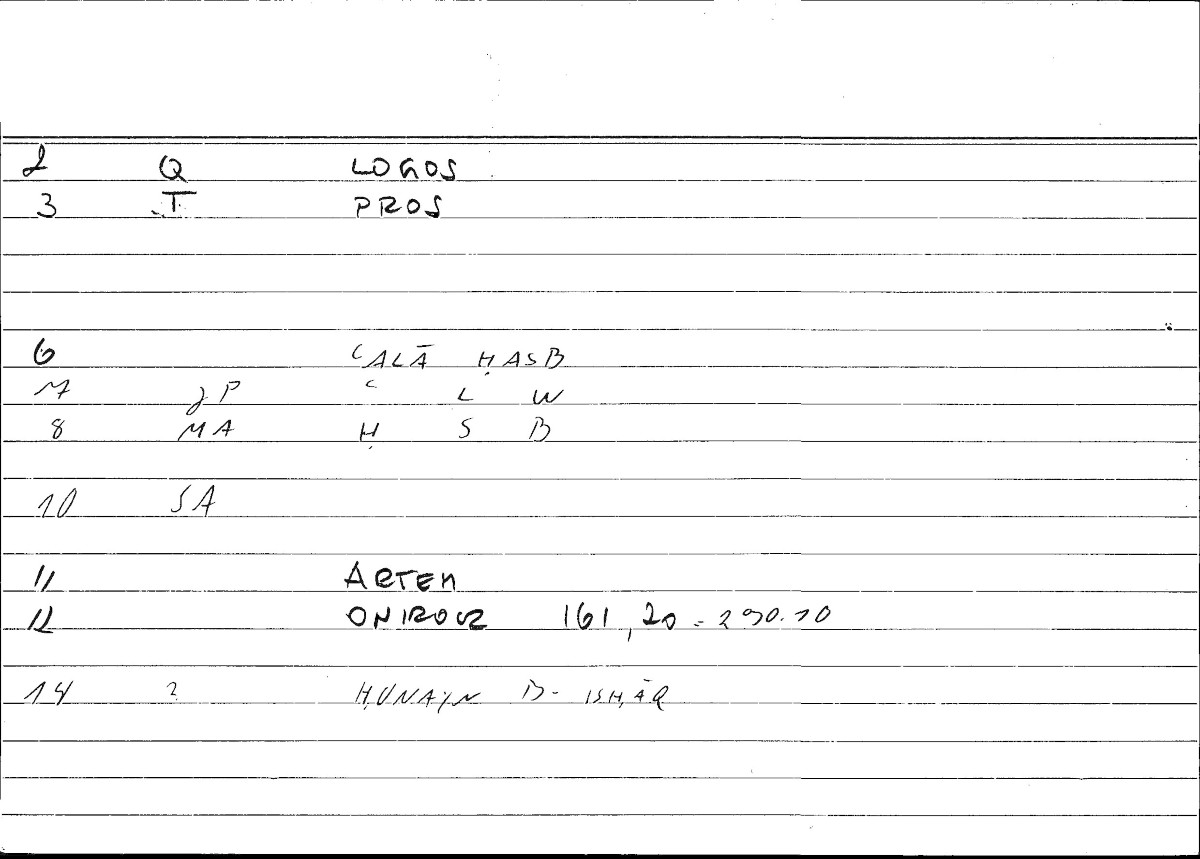 2 Q LOGOS
3 T PROS
6 ʿALĀ ḤASB
7 JP ʿ L W
8 MA Ḥ S B
10 SA
11 ARTEM
12 ONIROCR 161,20 = 290.10
14 2 ḤUNAYN B. ISḤĀQ